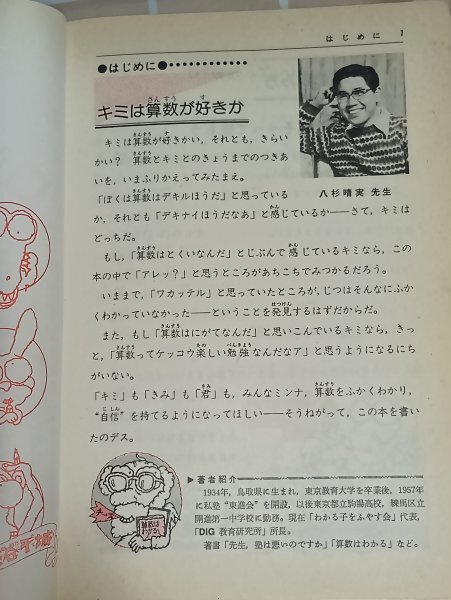 はじめに 1
●はじめに●••••••••••••
キミは算数が好きか
キミは算数が好きかい，それとも，きらい
かい？ 算数とキミとのきょうまでのつきあ
いを，いまふりかえってみたまえ。
「ぼくは算数はデキルほうだ」と思っている
か，それとも「デキナイほうだなあ」と感じているか――さて，キミは
どっちだ。
もし，「算数はとくいなんだ」とじぶんで感じているキミなら，この
本の中で「アレッ？」と思うところがあちこちでみつかるだろう。
いままで，「ワカッテル」と思っていたところが，じつはそんなにふか
くわかっていなかった――ということを発見するはずだからだ。
また，もし「算数はにがてなんだ」と思いこんでいるキミなら，きっ
と，「算数ってケッコウ楽しい勉強なんだなア」と思うようになるにち
がいない。
「キミ」も「きみ」も「君」も，みんなミンナ，算数をふかくわかり，
“自信”を持てるようになってほしい――そうねがって，この本を書い
たのデス。
八杉晴実 先生
▶著者紹介
1934年，鳥取県に生まれ，東京教育大学を卒業後，1957年
に私塾“東進会”を開設，以後東京都立駒場高校，練馬区立
開進第一中学校に勤務。現在「わかる子をふやす会」代表，
「DIG 教育研究所」所長。
著書「先生，塾は悪いのですか」「算数はわかる」など。
算数は